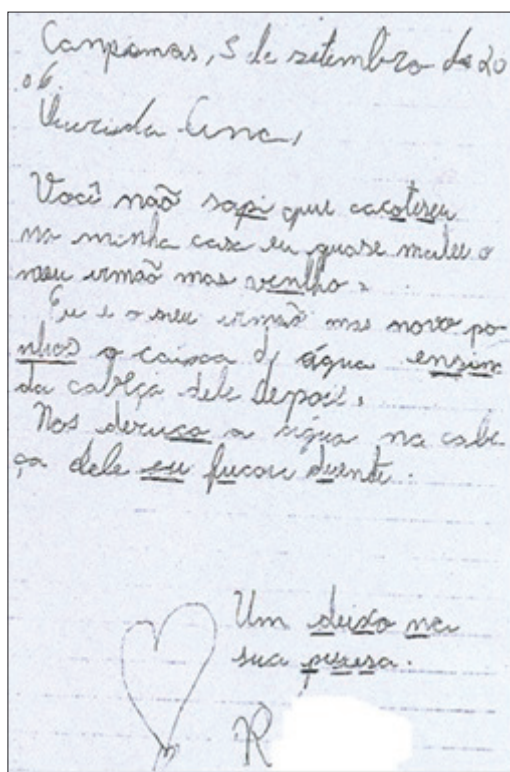 Campomas, 5 de setembro de 20
06
Querida Ana,
Você não sapi que cacoteseu
na minha casa eu quase matei o
meu irmão mas venlho.
Eu e o meu irmão mas novo po
nhos o caixa d, água ensim
da cabeça dele depois,
Nos deruco a água na cabe
ça dele eu ficou duente.
Um deixo na
sua puxesa.
R